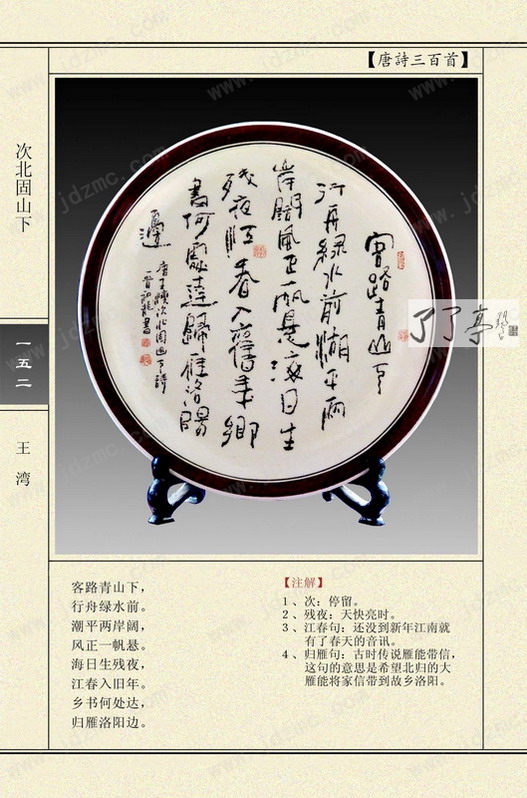 【唐詩三百首】
次北固山下
一五二
王 湾
客路青山下
行舟綠水前潮平两
岸闊風正一帆悬海日生
残夜江春入舊年鄉
書何處達歸雁洛陽
邊
唐王湾次北固山下詩
了了亭
客路青山下，
行舟绿水前。
潮平两岸阔，
风正一帆悬。
海日生残夜，
江春入旧年。
乡书何处达，
归雁洛阳边。
【注解】
1、次：停留。
2、残夜：天快亮时。
3、江春句：还没到新年江南就
有了春天的音讯。
4、归雁句：古时传说雁能带信，
这句的意思是希望北归的大
雁能将家信带到故乡洛阳。
www.jdzmc.com